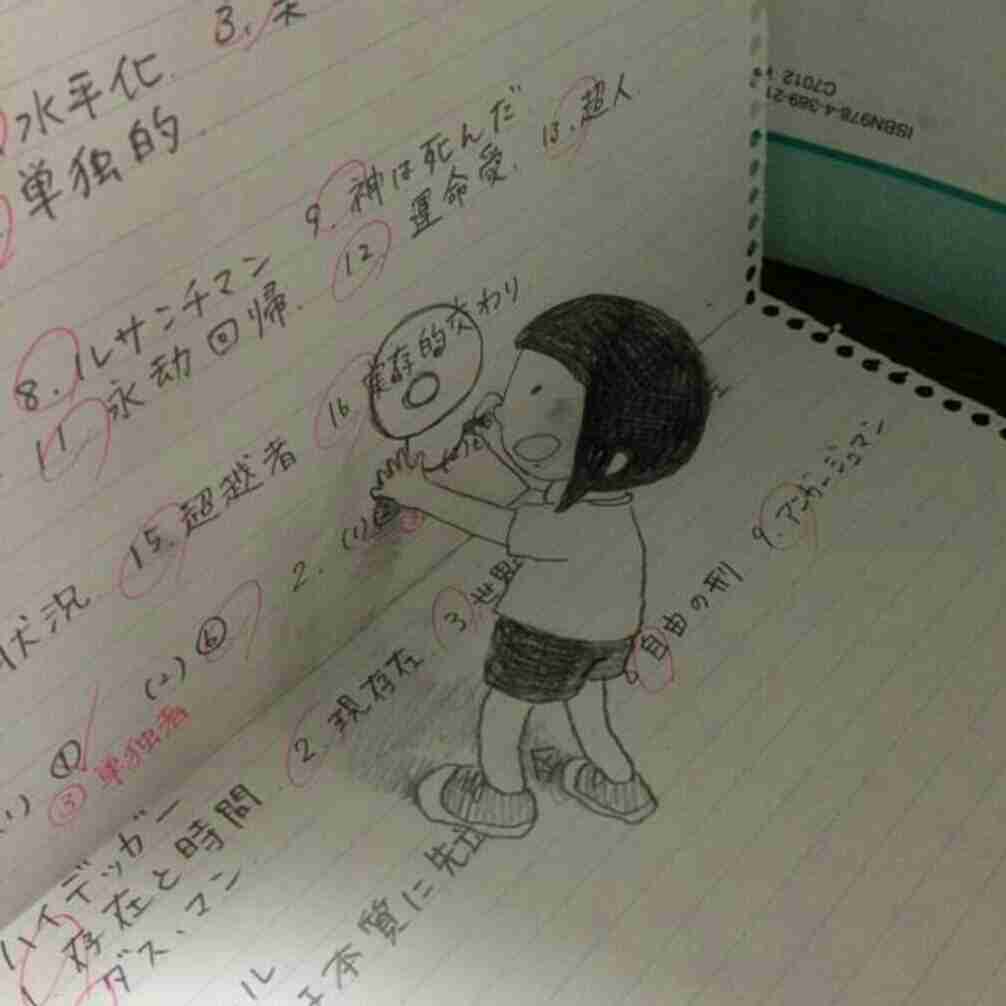 3.
水平化
単独的
9. 神は死んだ
13. 超人
12 運命愛.
8. ルサンチマン
11 永劫回帰.
16. 実存的交わり
15. 超越者
状況
2. (1)
(2) ⓑ
(1) ①
③ 単独者
ハイデッガー
存在と時間
2. 現存在
3. 世界
自由の刑
9. アンガージュマン
ダス、マン
ル
本質に先立
ISBN978-4-389-21
C7012